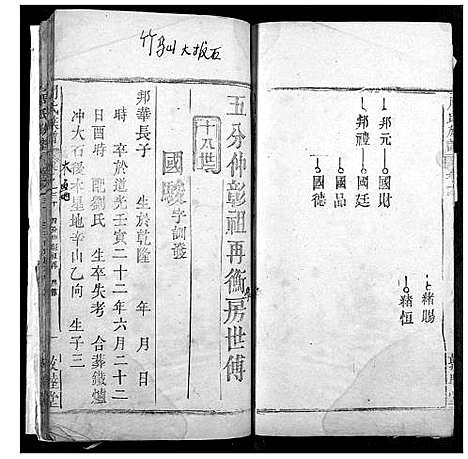 邦元 國財
邦禮 國廷
國品
國德
緒賜
緒恒
竹山大板石
五分仲彰祖再衡房世傳
十八世
國駿 字訓發
邦華長子 生於乾隆 年 月 日
時 卒於道光壬寅二十二年六月二十二
日酉時 配劉氏 生卒失考 合葬鐵爐
冲大石後木星地辛山乙向 生子三